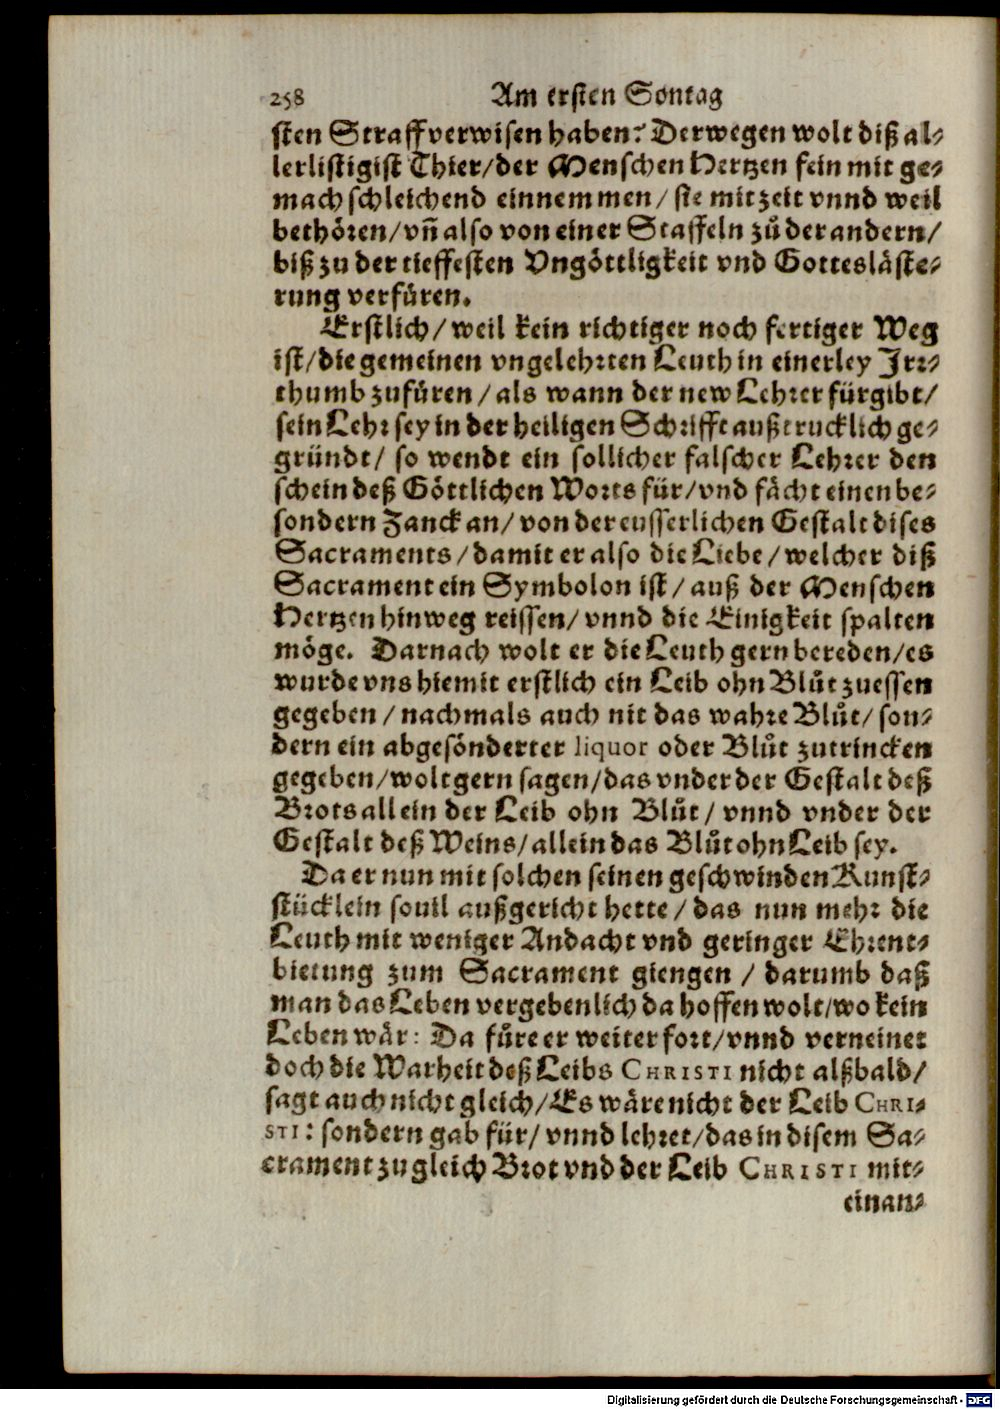 258 Am ersten Sontag
sten Straff verwisen haben? Derwegen wolt diß al⸗
lerlistigist Thier/ der Menschen Hertzen fein mit ge⸗
mach schleichend einnemmen/ sie mit zeit vnnd weil
bethören/ vn̄ also von einer Staffeln zů der andern/
biß zu der tieffesten Vngöttligkeit vnd Gotteslåste⸗
rung verfůren.
Erstlich/ weil kein richtiger noch fertiger Weg
ist/ die gemeinen vngelehrten Leuth in einerley Irr⸗
thumb zufůren/ als wann der new Lehrer fürgibt/
sein Lehr sey in der heiligen Schrifft außtrucklich ge⸗
gründt/ so wendt ein sollicher falscher Lehrer den
schein deß Göttlichen Worts für/ vnd fächt einen be⸗
sondern Zanck an/ von der eusserlichen Gestalt dises
Sacraments/ damit er also die Liebe/ welcher diß
Sacrament ein Symbolon ist/ auß der Menschen
Hertzen hinweg reissen/ vnnd die Einigkeit spalten
möge. Darnach wolt er die Leuth gern bereden/ es
wurde vns hiemit erstlich ein Leib ohn Blůt zuessen
gegeben/ nachmals auch nit das wahre Blůt/ son⸗
dern ein abgesönderter liquor oder Blůt zutrincken
gegeben/ wolt gern sagen/ das vnder der Gestalt deß
Brots allein der Leib ohn Blůt/ vnnd vnder der
Gestalt deß Weins/ allein das Blůt ohn Leib sey.
Da er nun mit solchen seinen geschwinden Kunst⸗
stücklein souil außgericht hette/ das nun mehr die
Leuth mit weniger Andacht vnd geringer Ehrent⸗
bietung zum Sacrament giengen/ darumb daß
man das Leben vergebenlich da hoffen wolt/ wo kein
Leben wår: Da fůre er weiter fort/ vnnd verneinet
doch die Warheit deß Leibs CHRISTI nicht alßbald/
sagt auch nicht gleich/ Es wåre nicht der Leib CHRI⸗
STI: sondern gab für/ vnnd lehret/ das in disem Sa⸗
crament zugleich Brot vnd der Leib CHRISTI mit⸗
einan⸗
Digitalisierung gefördert durch die Deutsche Forschungsgemeinschaft - DFG